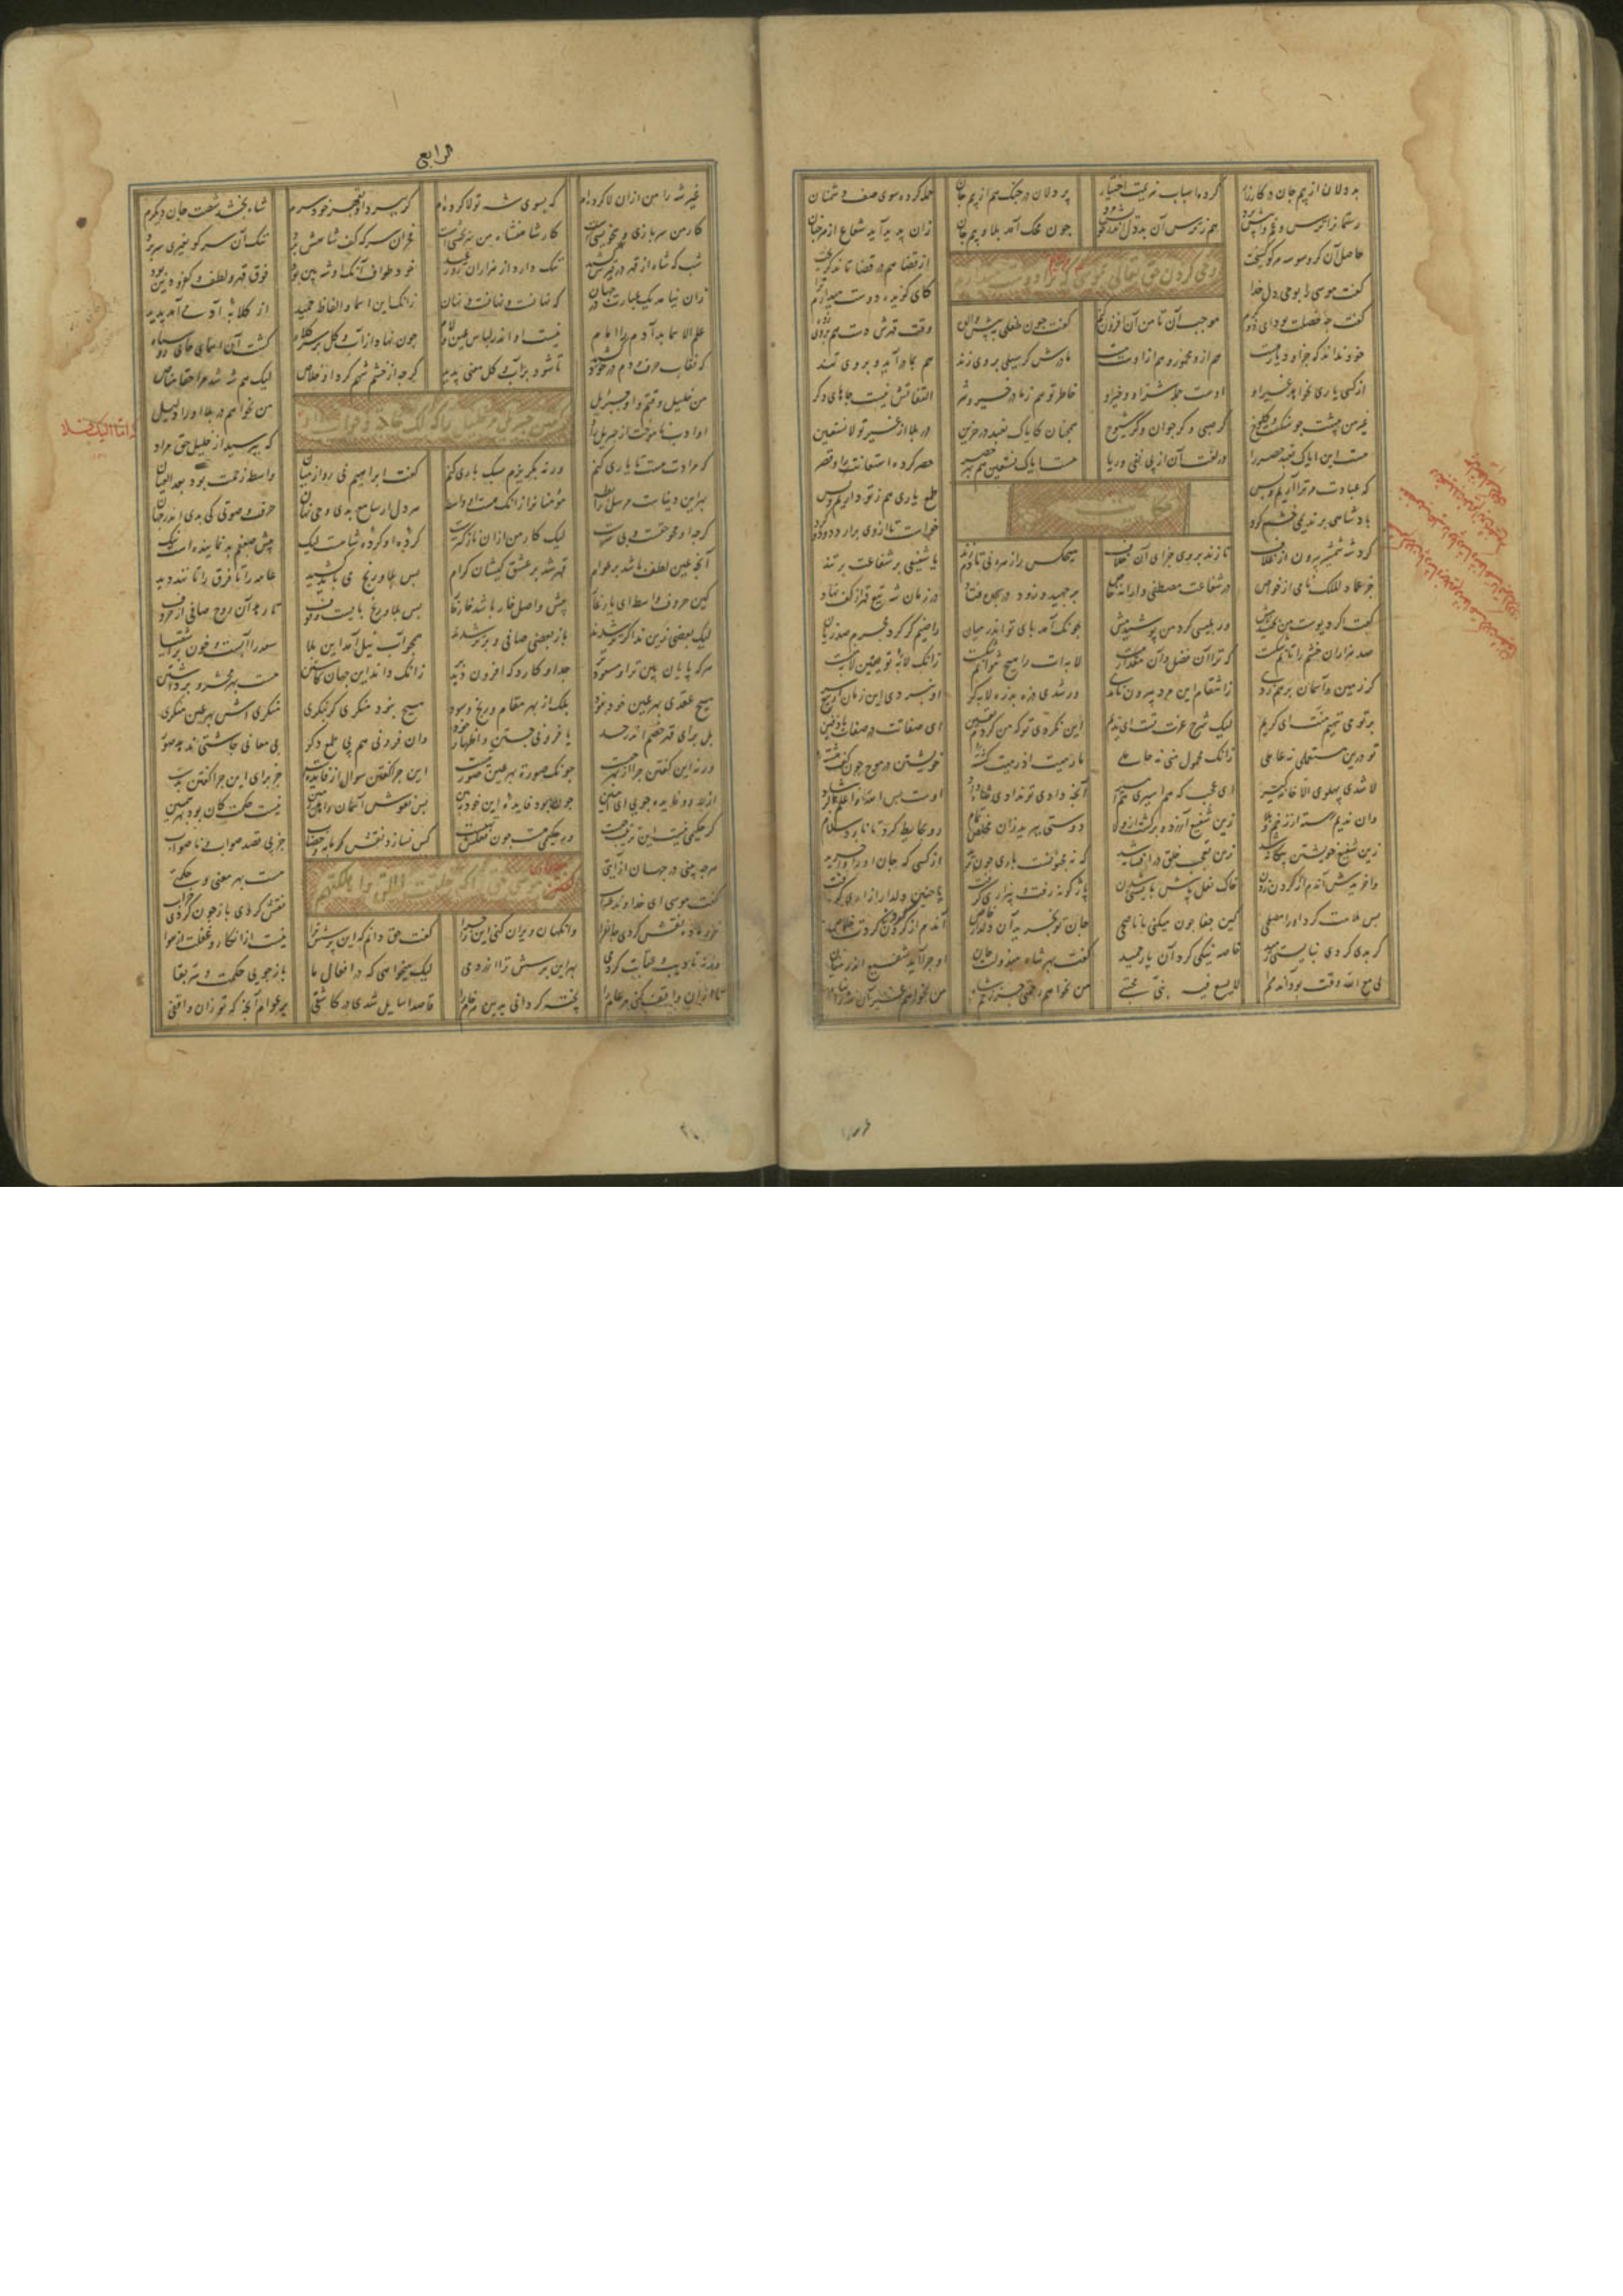 بددلان از بیم جان در کارزار کرده اسباب هزیمت اختیار پردلان در جنک هم از بیم جان حمله کرده سوی صف دشمنان
رستمانرا ترس و غم واپیش برد هم ز ترس آن بددل اندر خویش مرد چون محک آمد بلا و بیم جان زان پدید آید شجاع از هر جبان
حاصل آن کز وسوسه هر کو کسیخت از قضا هم در قضا تاند کریخت
وحی کردن حق تعالی بموسی که ترا دوست میدارم
کفت موسی را بوحی دل خدا کای کزیده دوست میدارم ترا
کفت چه خصلت بود ای ذوالکرم موجب آن تا من آن افزون کنم کفت چون طفلی بپیش والده وقت قهرش دست هم در وی زده
خود نداند که جز او دیار هست هم ازو مخمور و هم از اوست مست مادرش کر سیلی بر وی زند هم بمادر آید و بر وی تند
از کسی یاری نخواهد غیر او اوست جمله شر او و خیر او خاطر تو هم ز ما در خیر و شر التفاتش نیست جاهای دکر
غیر من پیشت چو سنکست و کلوخ کر صبی و کر جوان و کر شیوخ همچنان کایاک نعبد در حنین در بلا از غیر تو لا نستعین
هست این ایاک نعبد حصر را در لغت آن از پی نفی ریا هست ایاک نستعین هم بهر حصر حصر کرده استعانت را و قصر
که عبادت مر ترا آریم و بس طمع یاری هم ز تو داریم و بس
حکایت
پادشاهی بر ندیمی خشم کرد خواست تا از وی برآرد دود و کرد
کرد شه شمشیر بیرون از غلاف تا زند بر وی جزای آن خلاف هیچکس را زهره نی تا دم زند یا شفیعی بر شفاعت بر تند
جز عماد الملک نامی از خواص در شفاعت مصطفی وارانه خاص بر جهید و زود در سجده فتاد در زمان شه تیغ قهر از کف نهاد
کفت اکر دیوست من بخشیدمش ور بلیسی کرد من پوشیدمش چونک آمد پای تو اندر میان راضیم کر کرد مجرم صد زیان
صد هزاران خشم را تانم شکست که ترا آن فضل و آن مقدار هست لابه‌ات را هیچ نتوانم شکست زانک لابه تو یقین لابه منست
کر زمین و آسمان بر هم زدی ز انتقام این مرد بیرون نامدی ور شدی ذره بذره لابه کر او نبردی این زمان از تیغ سر
بر تو می ننهیم منت ای کریم لیک شرح عزت تست ای ندیم این نکردی تو که من کردم یقین ای صفاتت در صفات ما دفین
تو درین مستعملی نه عاملی زانک محمول منی نه حاملی ما رمیت اذ رمیت کشته خویشتن در موج چون کف هشته
لا شدی پهلوی الا خانه کیر ای عجب که هم اسیری هم امیر آنچه دادی تو ندادی شاه داد اوست بس الله اعلم بالرشاد
وان ندیم رسته از زخم و بلا زین شفیع آزرد و برکشت از ولا دوستی ببرید زان مخلص تمام رو بحایط کرد تا نارد سلام
زین شفیع خویشتن بیکانه شد زین تعجب خلق در افسانه شد که نه مجنونست یاری چون برید از کسی که جان او را وا خرید
وا خریدش آن دم از کردن زدن خاک نعل پاش بایستی شدن بازکونه رفت و بیزاری کرفت با چنین دلدار
بس ملامت کرد او را مصلحی کین جفا چون میکنی با ناصحی جان تو بخرید آن دلدار خاص آندم از کردن زدن کردت خلاص
کر بدی کردی نبایستی رمید خاصه نیکی کرد آن یار حمید کفت بهر شاه مبذولست جان او چرا آید شفیع اندر میان
لی مع الله وقت بود آندم مرا لا یسع فیه نبی مجتبی من نخواهم رحمتی جز زخم شاه من نخواهم غیر آن شه را پناه
الرابع
غیر شه را من ازان لا کرده‌ام که بسوی شه تولا کرده‌ام کر ببرد او بقهر خود سرم شاه بخشد شصت جان دیکرم
کار من سربازی و بی خویشی است کار شاهنشاه من سربخشی است فخر آن سر که کف شاهش برد ننک آن سر کو بغیری سر برد
شب که شاه از قهر در قیرش کشید ننک دارد از هزاران روز عید خود طواف آنک او شه بین بود فوق قهر و لطف و کفر و دین بود
زان نیامد یک عبارت در جهان که نهانست و نهانست و نهان زانک این اسما و الفاظ حمید از کلابه آدمی آمد پدید
علم الاسما بد آدم را امام لیک نه اندر لباس عین و لام چون نهاد از آب و کل بر سر کلاه کشت آن اسمای جانی رو سیاه
که نقاب حرف و دم در خود کشید تا شود بر آب و کل معنی پدید کرچه از خشم شهم کرد او خلاص لیک هم شه شد مرا حقا مناص
کفتن جبرئیل مر خلیل را که الک حاجة و جواب او
من خلیل وقتم و او جبرئیل من نخواهم در بلا او را دلیل
او ادب ناموخت از جبریل راد که بپرسید از خلیل حق مراد
که مرادت هست تا یاری کنم ورنه بکریزم سبک باری کنم کفت ابراهیم نی رو از میان واسطه زحمت بود بعد العیان
بهر این دنیاست مرسل رابطه مؤمنانرا زانک هست او واسطه هر دل ار سامع بدی وحی نهان حرف و صوتی کی بدی اندر جهان
کرچه او محو حقست و بی سرست لیک کار من ازان نازکترست کرده او کرده شاهست لیک پیش ضعفم بد نماینده است نیک
آنچه عین لطف باشد بر عوام قهر شد بر عشق کیشان کرام بس بلا و رنج می باید کشید عامه را تا فرق را تانند دید
کین حروف واسطه ای یار غار پیش واصل خار باشد خار خار بس بلا و رنج بایست و وقوف تا رهد آن روح صافی از حروف
لیک بعضی زین ندا کرتر شدند باز بعضی صافی و برتر شدند همچو آب نیل آمد این بلا سعد را آبست و خون بر اشقیا
هر که پایان بین تر او مسعودتر جدتر او کارد که افزون دید بر زانک داند این جهان کاشتن هست بهر محشر و برداشتن
هیچ عقدی بهر عین خود نبود بلک از بهر مقام ربح و سود هیچ نبود منکری کر بنکری منکری اش بهر عین منکری
بل برای قهر خصم اندر حسد یا فزونی جستن و اظهار خود وان فزونی هم پی طمع دکر بی معانی چاشنی ندهد صور
زان همی پرسی چرا این میکنی ورنه این کفتن چرا از بهر چیست چونک صورت بهر عین صورتست این چرا کفتن سوال از فایده‌ست جز برای این چرا کفتن بدست
از چه رو فایده جویی ای امین چون بود فایده این خود همین بس نقوش آسمان و اهل زمین نیست حکمت کان بود بهر همین
کر حکیمی نیست این ترتیب چیست ور حکیمی هست چون فعلش تهیست کس نسازد نقش کرمابه و خضاب جز پی قصد صواب و ناصواب
مطالبه کردن موسی حق را که خلقت الخلق و اهلکتهم
هرچه بینی در جهان از آیتی هست بهر معنی و حکمتی
کفت موسی ای خداوند حساب نقش کردی باز چون کردی خراب
نر و ماده نقش کردی جانفزا وانکهان ویران کنی این را چرا کفت حق دانم که این پرسش ترا نیست از انکار و غفلت وز هوا
ورنه تادیب و عتابت کردمی بهر این پرسش ترا آزردمی لیک میخواهی که در افعال ما باز جویی حکمت و سر بقا
تا ازان واقف کنی مر عام را پخته کردانی بدین هر خام را قاصدا سایل شدی در کاشفی بر عوام ار چه که تو زان واقفی
اما الیک فلا